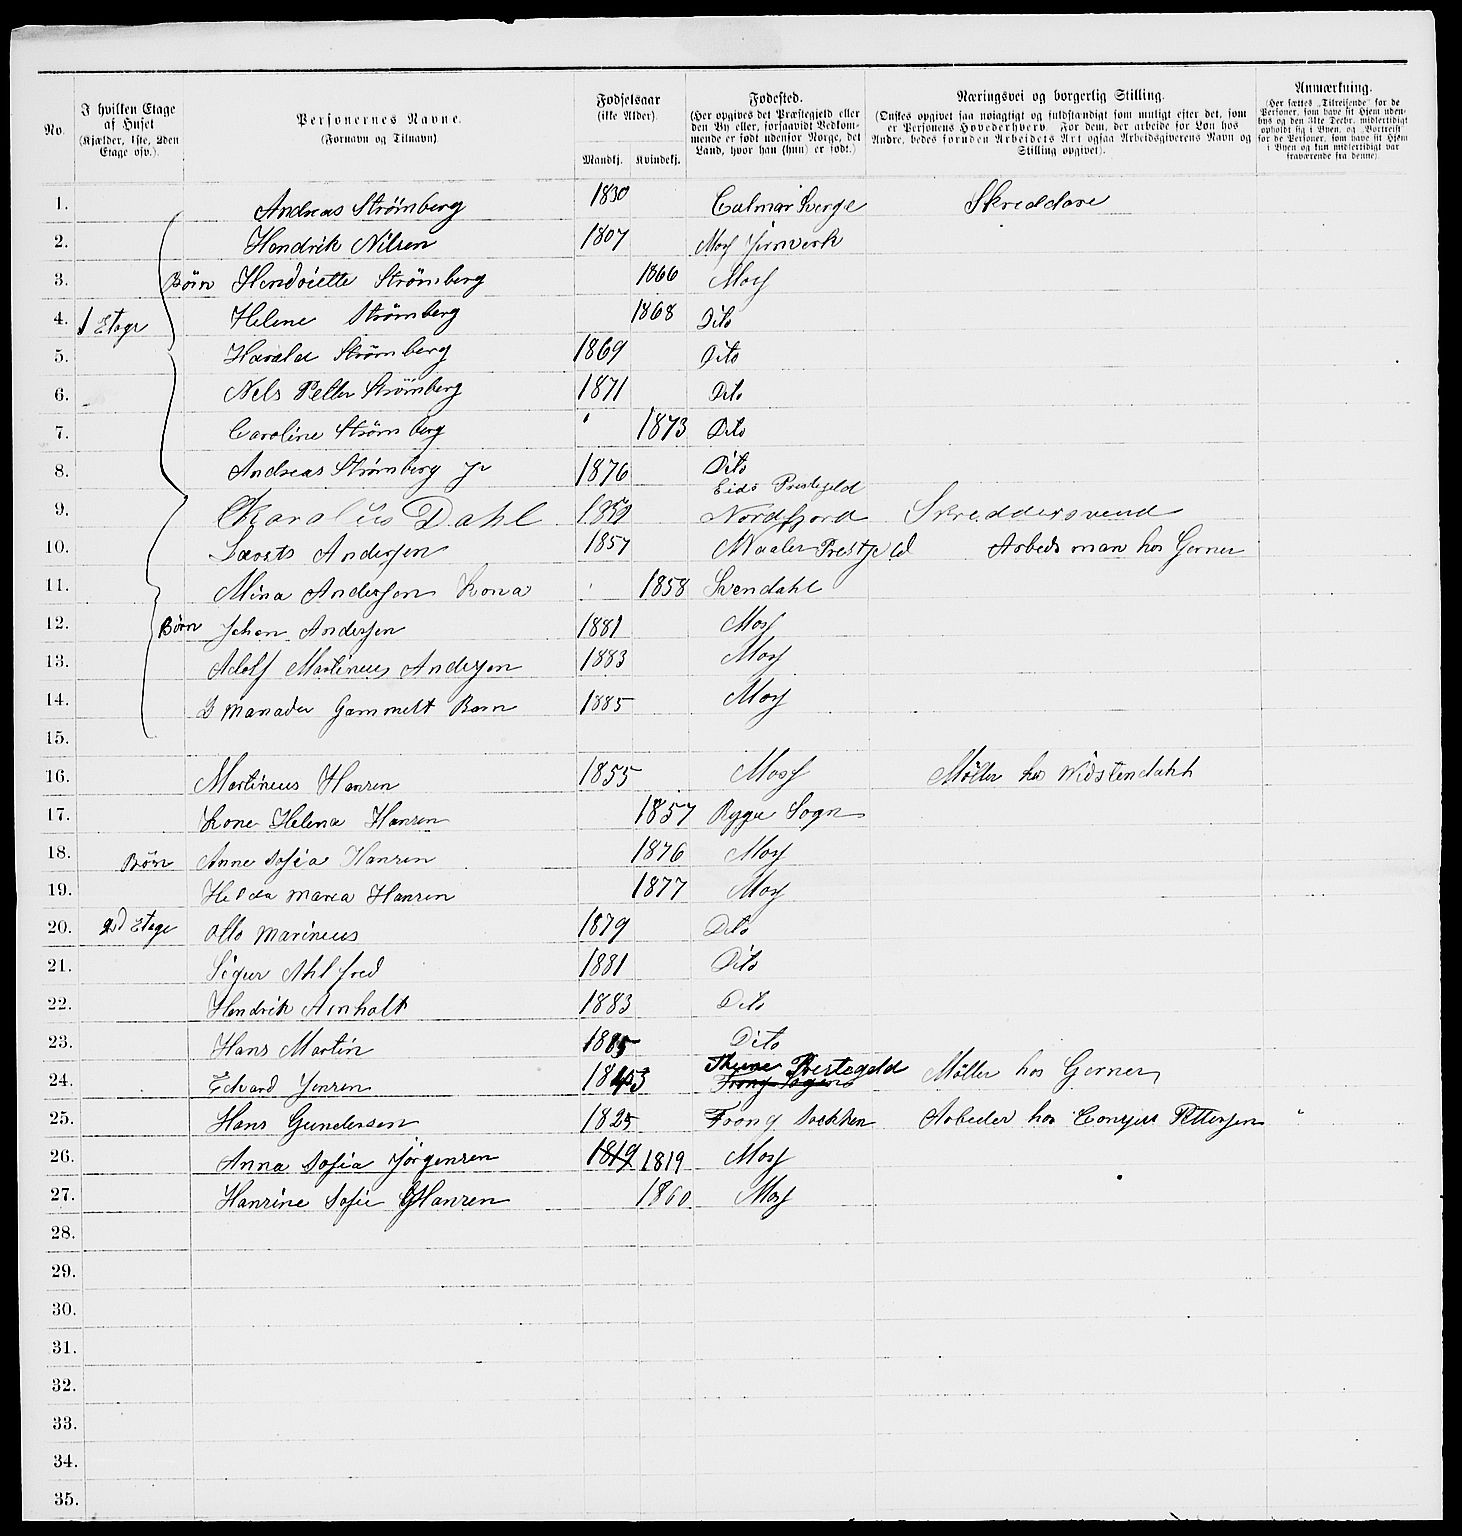 No.
I hvilken Etage af Huset (Kjælder, 1ste, 2den Etage osv.).
Personernes Navne.
(Fornavn og Tilnavn)
Fødselsaar (ikke Alder).
Mandkj. Kvindekj.
Fødested.
(Her opgives det Præstegjeld eller den By eller, forsaavidt Vedkommende er født udenfor Norge, det Land, hvor han (hun) er født.)
Næringsvei og borgerlig Stilling.
(Ønstes opgivet saa nøiagtigt og fuldstændigt som muligt efter det, som er Personens Hovederhverv. For dem, der arbeide for Løn hos Andre, bedes foruden Arbeidets Art ogsaa Arbeidsgiverens Navn og Stilling opgivet).
Anmærkning.
(Her sættes „Tilreisende" for de Personer, som have sit Hjem udenbys og den 31te Decbr. midlertidigt opholdt sig i Byen, og „Bortreist" for de Personer, som have sit Hjem i Byen og kun midlertidigt var fraværende fra denne).
1. Andreas Strömberg 1830 Calmar Sverge Skreddare
2. Hendrik Nilsen 1807 Moss Jernverk
3. Børn Hendriette Strömberg 1866 Moss
4. 1 Etage Helene Strömberg 1868 Dito
5. Harald Strömberg 1869 Dito
6. Nels Petter Strömberg 1871 Dito
7. Caroline Strömberg 1873 Dito
8. Andreas Strömberg jr 1876 Dito
9. Karolus Dahl 1859 Eids Prestegeld Nordfjord Skreddersvend
10. Laurts Andersen 1857 Maaler Prestjeld Arbedsman hos Gerner
11. Mina Andersen Kona 1858 Svendahl
12. Børn Johan Andersen 1881 Moss
13. Adolf Martineus Andersen 1883 Moss
14. 3 Manader Gammelt Barn 1885 Moss
15.
16. Martineus Hansen 1855 Moss Møller hos Widstendahl
17. Kone Helena Hansen 1857 Rygge Sogn
18. Børn Anne Sofia Hansen 1876 Moss
19. Helda Maria Hansen 1877 Moss
20. 2d Etage Otto Marineus 1879 Dito
21. Sigur Ahlfred 1881 Dito
22. Hendrik Arnholt 1883 Dito
23. Hans Martin 1885 Dito
24. Edvard Jensen 1843 Thune Prestegeld Møller hos Gerner
25. Hans Gundersen 1825 Trong Sockken Arbeder hos Konsul Pettersen "
26. Anna Sofia Jörgensen 1819 1819 Moss
27. Hansine Sofie Hansen 1860 Moss
28.
29.
30.
31.
32.
33.
34.
35.